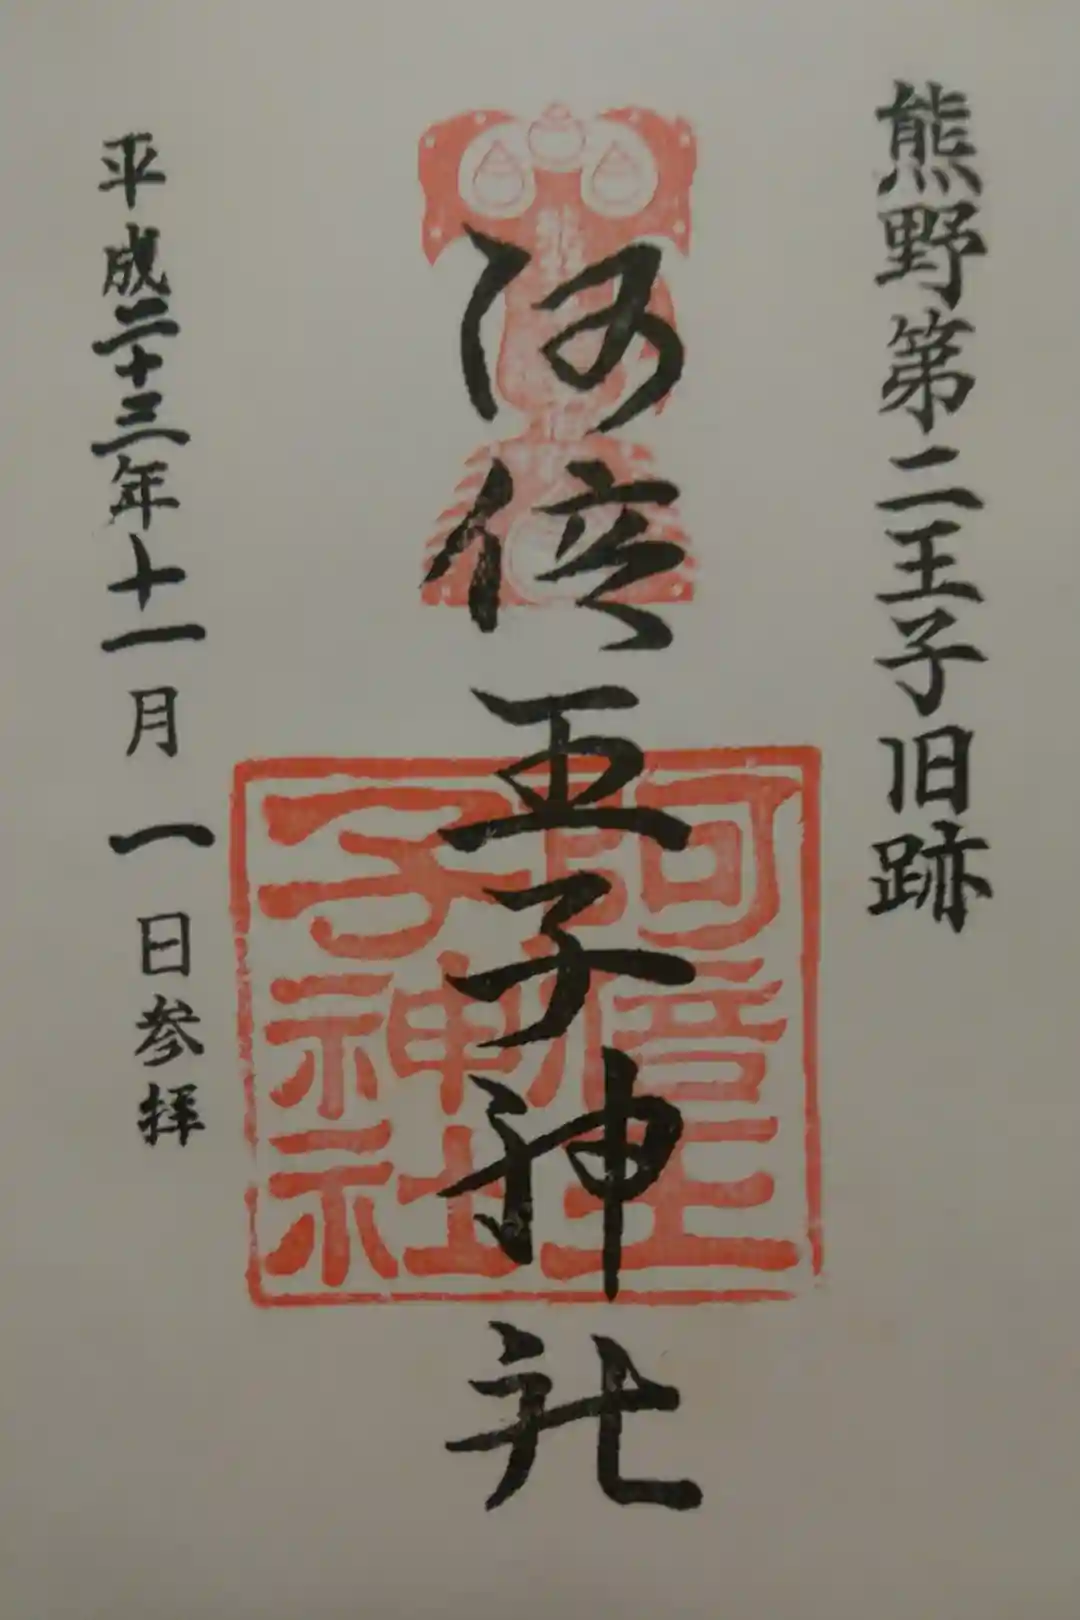 熊野第二王子旧跡
阿倍王子神社
阿倍王子神社
平成二十三年十一月一日参拝